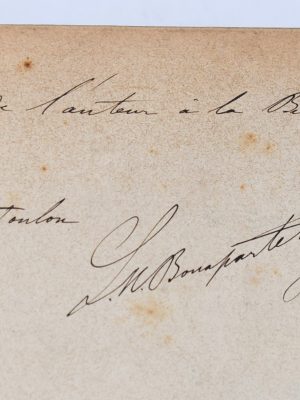 de l'auteur à la
Toulon
L. N. Bonaparte